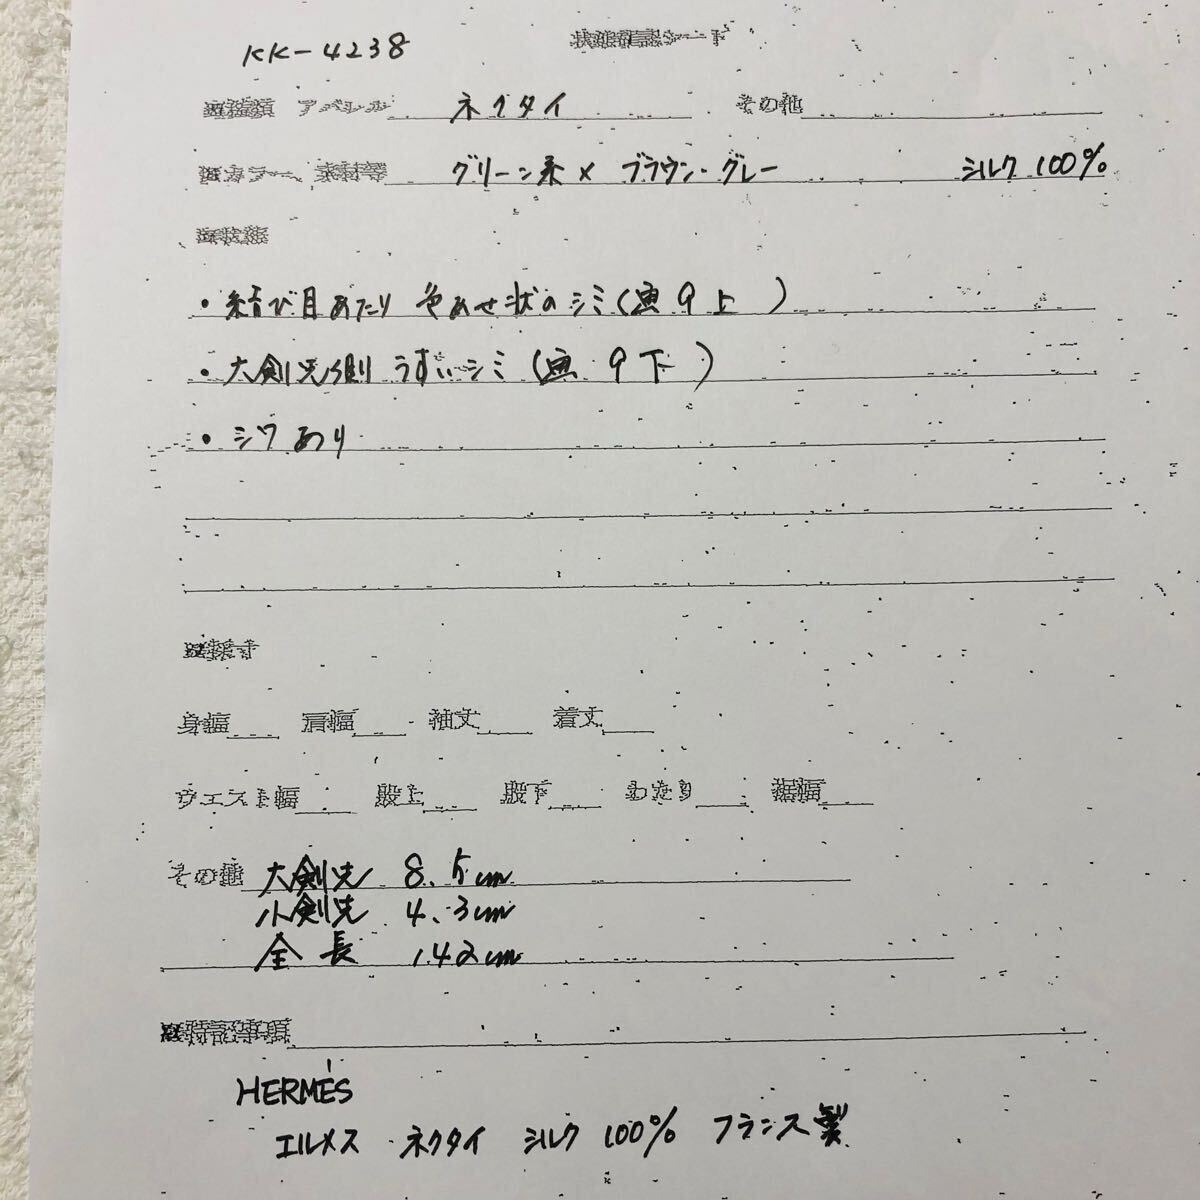 KK-4238
状態確認シート
■種類 アパレル ネクタイ その他
■カラー 素材等 グリーン系×ブラウン・グレー シルク 100%
■状態
・結び目あたり 色あせ状のシミ(画 9 上 )
・大剣先側 うすいシミ(画 9 下 )
・シワあり
■採寸
身幅 肩幅 袖丈 着丈
ウエスト幅 股上 股下 わたり 裾幅
その他 大剣先 8.5cm
小剣先 4.3cm
全長 142cm
■特記事項
HERMÉS
エルメス ネクタイ シルク 100% フランス製